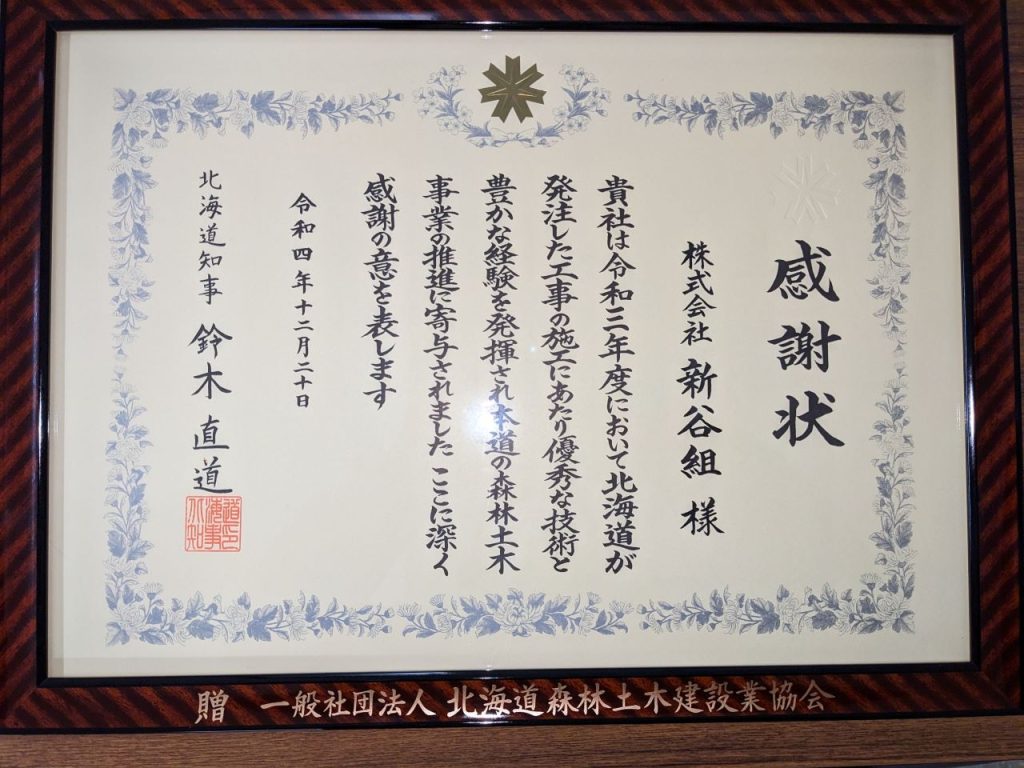 感謝状
株式会社 新谷組 様
貴社は令和三年度において北海道が
発注した工事の施工にあたり優秀な技術と
豊かな経験を発揮され本道の森林土木
事業の推進に寄与されました ここに深く
感謝の意を表します
令和四年十二月二十日
北海道知事 鈴木直道
北海道知事印
贈 一般社団法人 北海道森林土木建設業協会